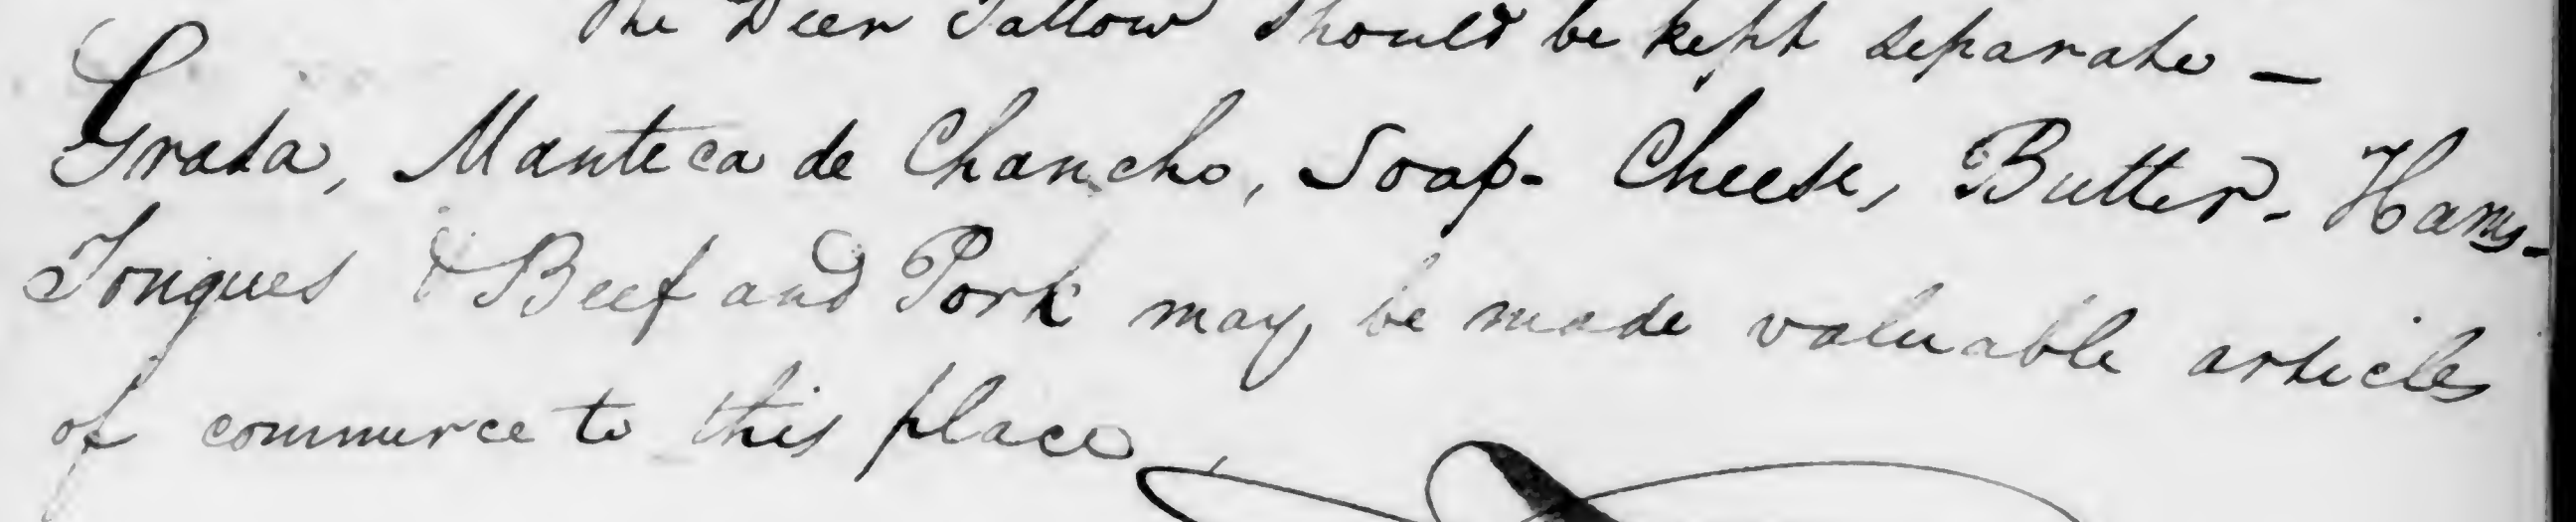 The Deer Tallow Should be kept separate —
Grasa, Manteca de Chancho, Soap - Cheese, Butter - Hams -
Tongues & Beef and Pork may be made valuable articles
of commerce to this place,